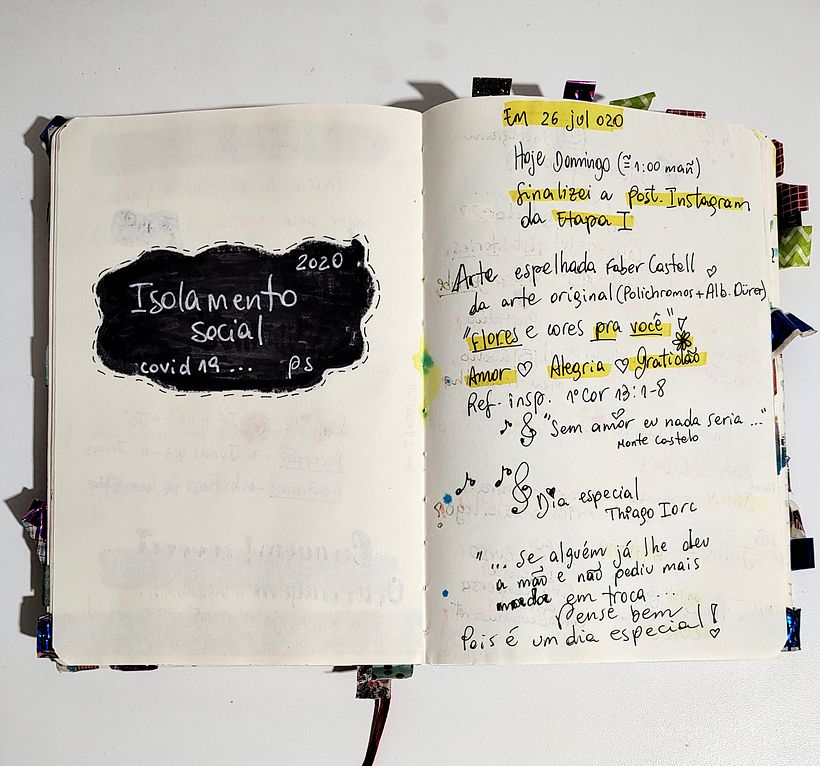 2020
Isolamento
social
covid 19... ps
Em 26 jul 020
Hoje Domingo (≅ 1:00 mañ)
finalizei a post. Instagram
da Etapa I
Arte espelhada Faber Castell
da arte original (Polichromos + Alb. Dürer)
"Flores e cores pra você"
Amor ♡ Alegria ♡ Gratidão
Ref. insp. 1º Cor 13:1-8
"Sem amor eu nada seria ..."
Monte Castelo
Dia especial
Thiago Iorc
"... se alguém já lhe deu
a mão e não pediu mais
nada em troca ...
Pense bem
Pois é um dia especial!